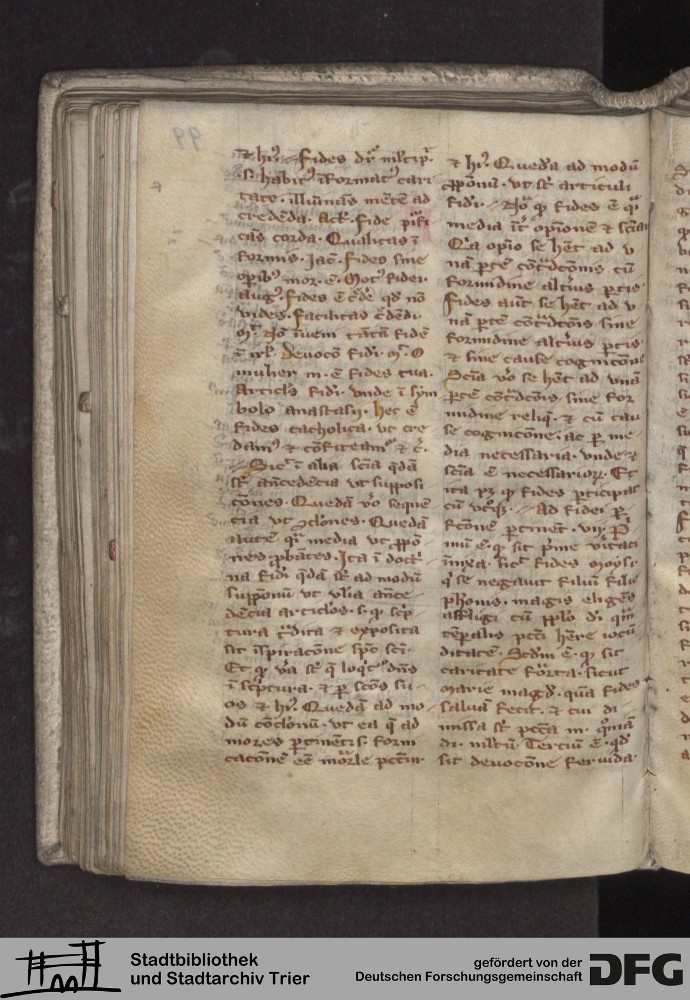 ⁊ hi9. Fides dr̄ ml̓tipl̓r.
s. habit9 īformat9 cari
tate. illumīās mētē ad
credēda. Act. fide puͥfi
cās corda. Qualitas ī
formis. Jac̄. fides sine
oꝑib9 mor. ē. Mot9 fidei.
aug9. fides ē c̄de qd̓ nō
vides. facilitas c̄dēdi.
Nō īueni tātā fidē
ī isr̄l. devoco̅ fidi. O
mulier m. ē fides tua.
Articl̓s fidi. vnde ī sym
bolo Anastasij. hec ē
fides catholica. vt cre
dam9 ⁊ cōfiteam9 ⁊ c̄.
Sic ī alia scīa q̄dā
st̄ antecedētia vt supposi
cōnes. Quedā v̓o sequē
cia vt ꝯclōnes. Quedā
autē qi media vt ꝓpō
nes ꝓbātes. Ita ī doct
na fidi q̄dā st̄ ad modū
suppōnū vt vl̓ia antece
dēcia articlōs. s. q̄ sc̓p
tura t̓dita ⁊ exposita
sit īspiracōne spc̄ sci.
Et qꝫ v̓a st̄ q̄ loqt̓ dn̄s
ī sc̓ptura. ⁊ ꝑ scōs su
os ⁊ hi9. Quedā ad mo
dū cōclōnū. vt ea q̄ ad
mores ꝑtinent. s. forni
cacōnē eē mōrle pctm̄.
⁊ hi9. Quedā ad modū
ꝓpōnū. vt st̄ articuli
fidi. Nō qꝫ fides ē qi
media īt̓ opīonē ⁊ sciam
Qia opio se hēt ad v
nā ꝑtē cōt̓dcōnis cū
formidine alti9 ꝑtis.
Fides aūt se hēt ad v
nā ꝑtē cōt̓dcōnis sine
formidine alti9 ꝑtis.
⁊ sine cause cognicōne
Scīa v̓o se hēt ad vnā
ꝑtē cōt̓dcōnis. sine for
midine reliq̄. ⁊ cū cau
se cognicōne. ac ꝑ me
dia necessaria. vnde ⁊
scīa ē necessarioꝝ. Et
ita pꝫ qꝫ fides ꝑticipat
cū vt̓qꝫ. Ad fidei ꝑ
fcōnē ꝑtinent. vij. P̓
mū ē. qꝫ sit p̓me v̓itati
īnixa. sic̄ fides moysi.
q̓ se negauit filiū filie
pharonis. magis eligēs
affligi cū ppl̓o di. qm̄
tēpalis pcti hēre iocū
ditatē. Scdm̄ ē. qꝫ sit
caritate for̄ta. sicut
marie magd̓. q̄ia fides
saluā fecit. ⁊ cui di
missa st̄ pctā m. qm̄
di. mltū. Terciū ē. qd̓
sit devocōne feruida.
Stadtbibliothek
und Stadtarchiv Trier
gefördert von der
Deutschen Forschungsgemeinschaft
DFG